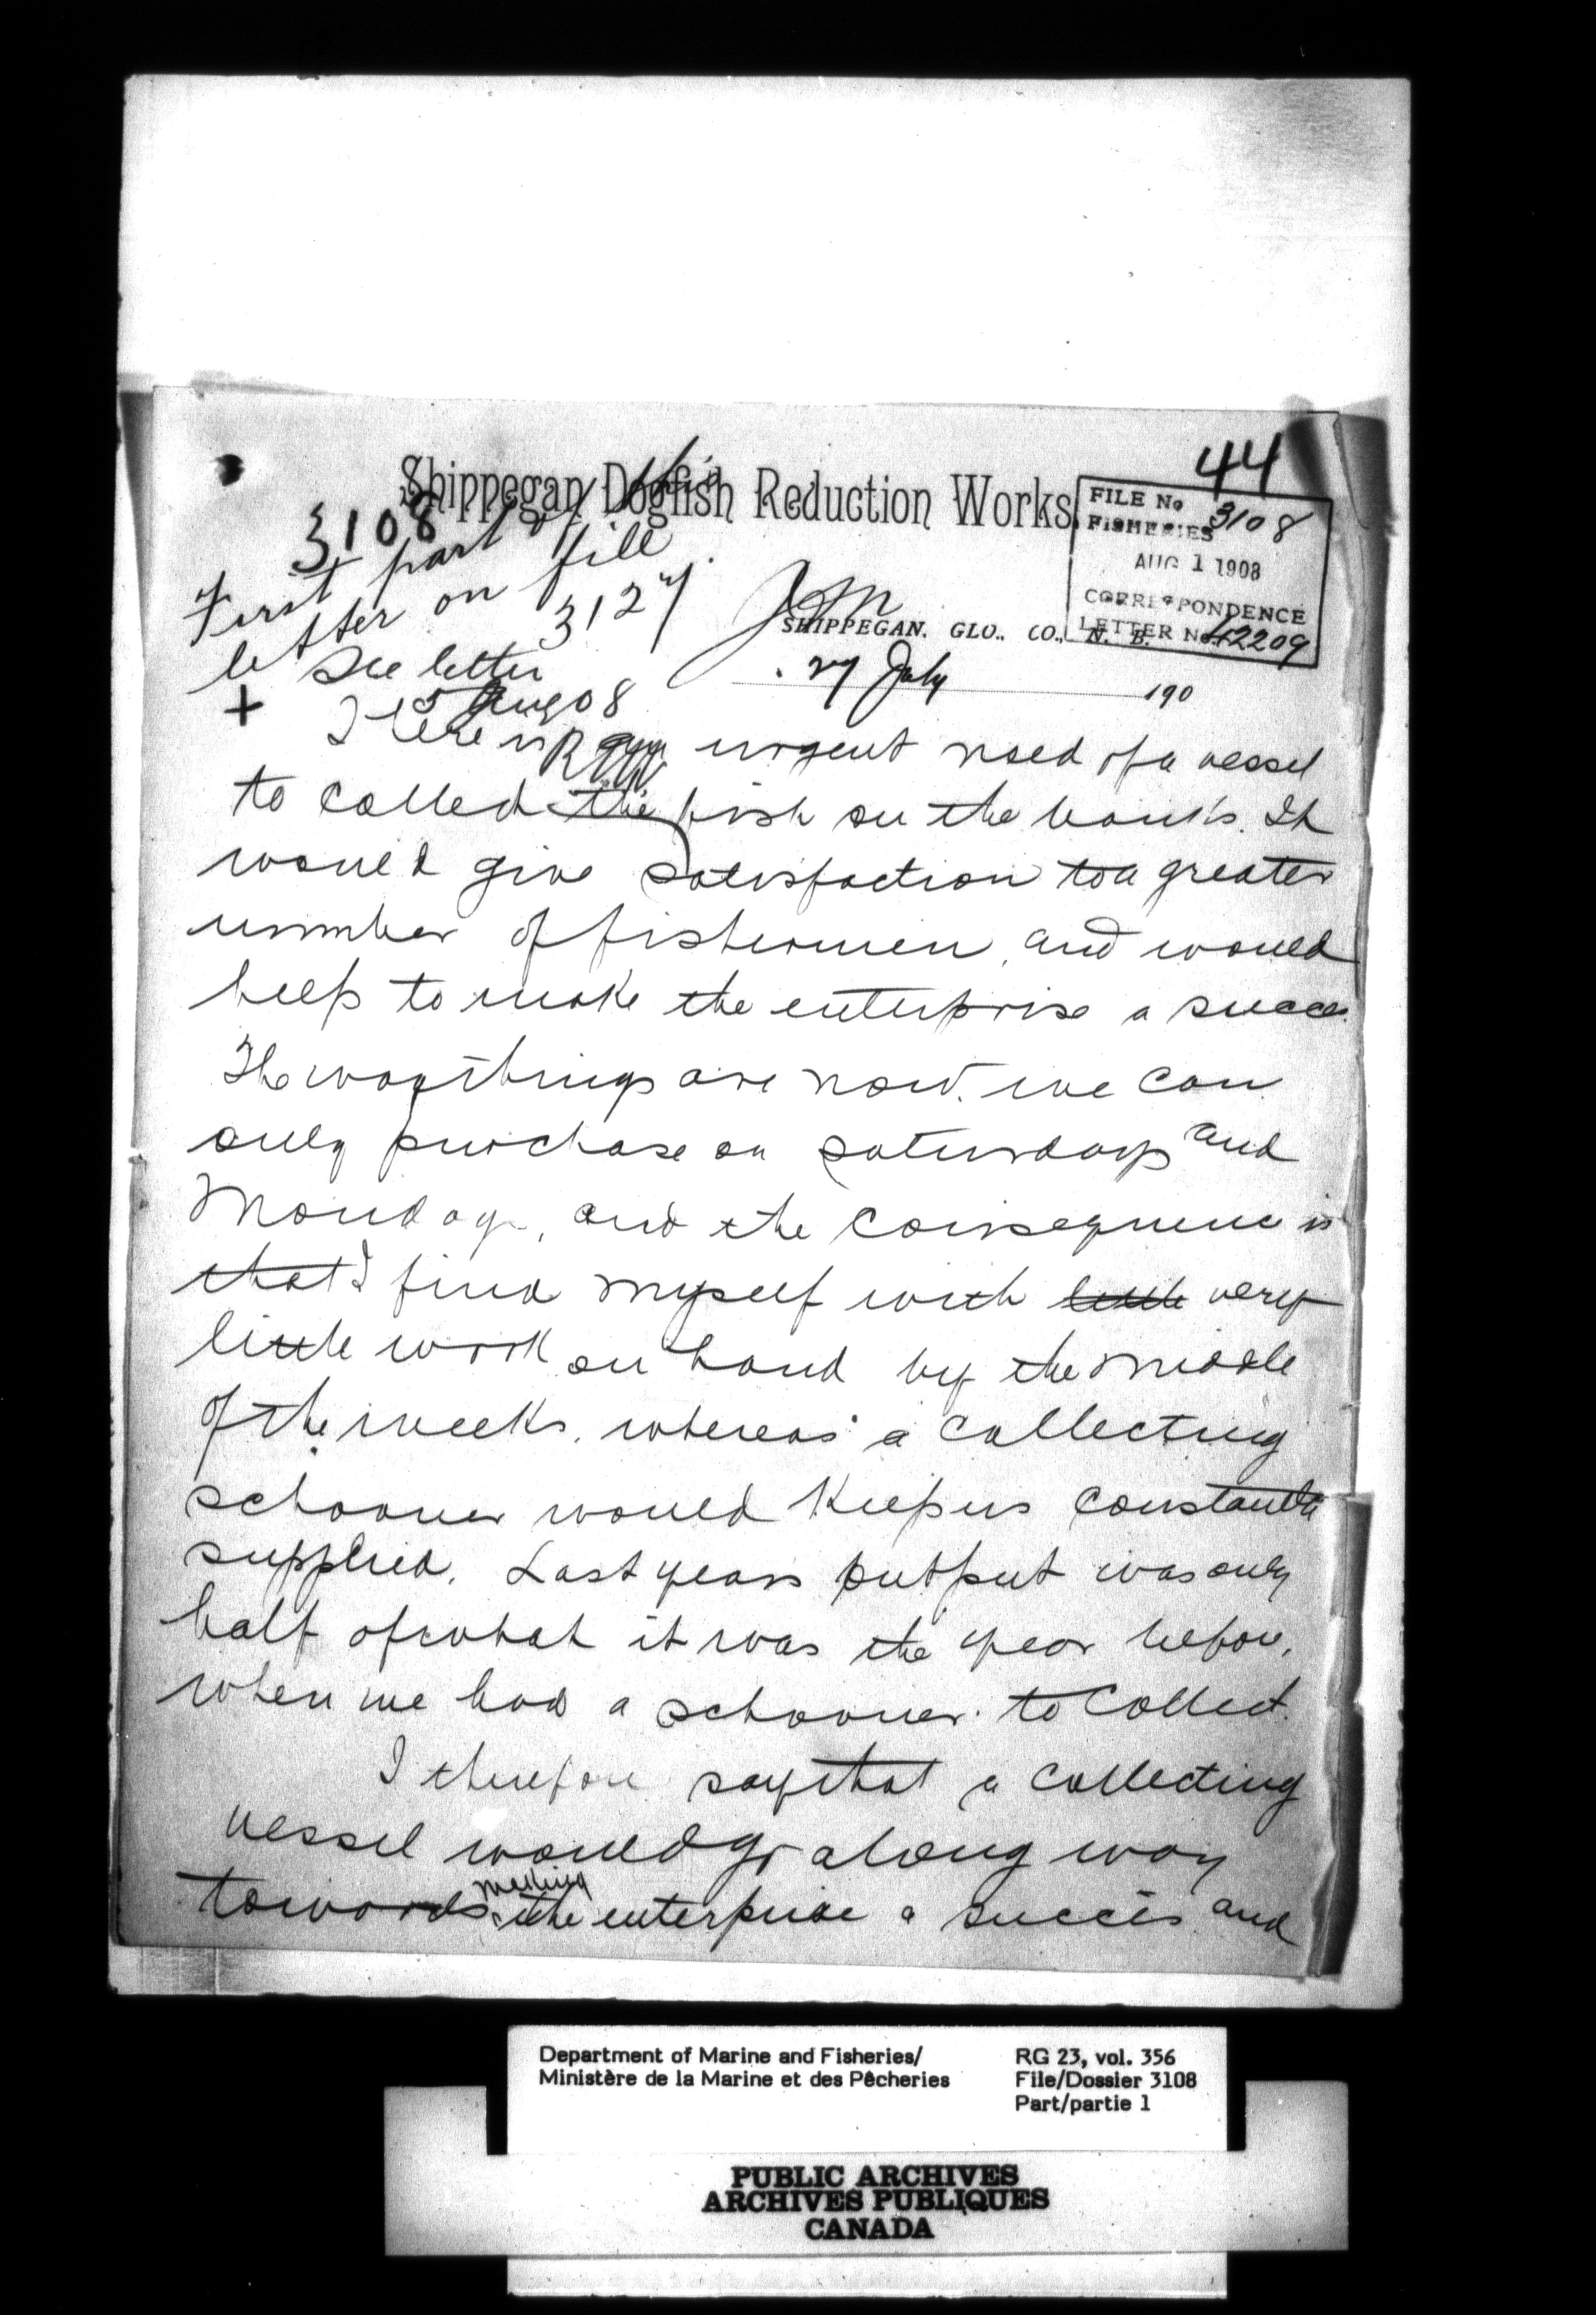 44
Shippegan Dogfish Reduction Works
FILE No 3108
FISHERIES
AUG 1 1908
CORRESPONDENCE
LETTER No. 42209
3108
First part of this
letter on file
3127.
See letter
5 Aug 08
SHIPPEGAN. GLO.. CO., N. B.
27 July 190
+
There is an urgent need of a vessel
to collect the fish on the banks. It
would give satisfaction to a greater
number of fishermen, and would
help to make the enterprise a succes.
The way things are now, we can
only purchase on Saturdays and
Mondays, and the consequence is
that I find myself with little very
little work on hand by the middle
of the weeks, whereas a collecting
schooner would keep us constantly
supplied. Last years output was only
half of what it was the year before,
when we had a schooner to collect.
I therefore say that a collecting
vessel would go a long way
towards making the enterprise a succes and
Department of Marine and Fisheries/
Ministère de la Marine et des Pêcheries
RG 23, vol. 356
File/Dossier 3108
Part/partie 1
PUBLIC ARCHIVES
ARCHIVES PUBLIQUES
CANADA